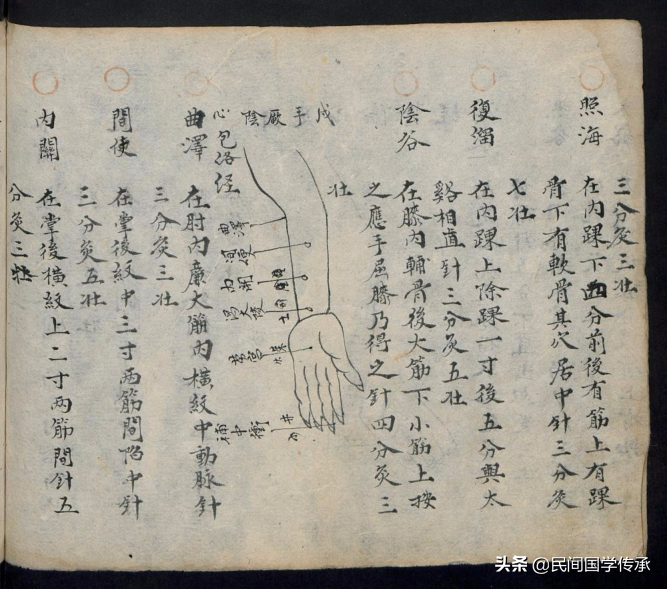 三分灸三壯
照海 在内踝下四分前後有筋上有踝
骨下有軟骨其穴居中針三分灸
七壯
復溜 在内踝上除踝一寸後五分與太
谿相直針三分灸五壯
陰谷 在膝内輔骨後大筋下小筋上按
之應手屈膝乃得之針四分灸三
壯
戌手厥陰
心包洛经
曲澤
内関
大陵
劳宫
中衝
井
曲澤 在肘内廉大筋内横紋中動脉針
三分灸三壯
間使 在掌後紋中三寸两筋間陷中針
三分灸五壯
内關 在掌後横紋上二寸两筋間針五
分灸三壯
头条 @民间国学传承